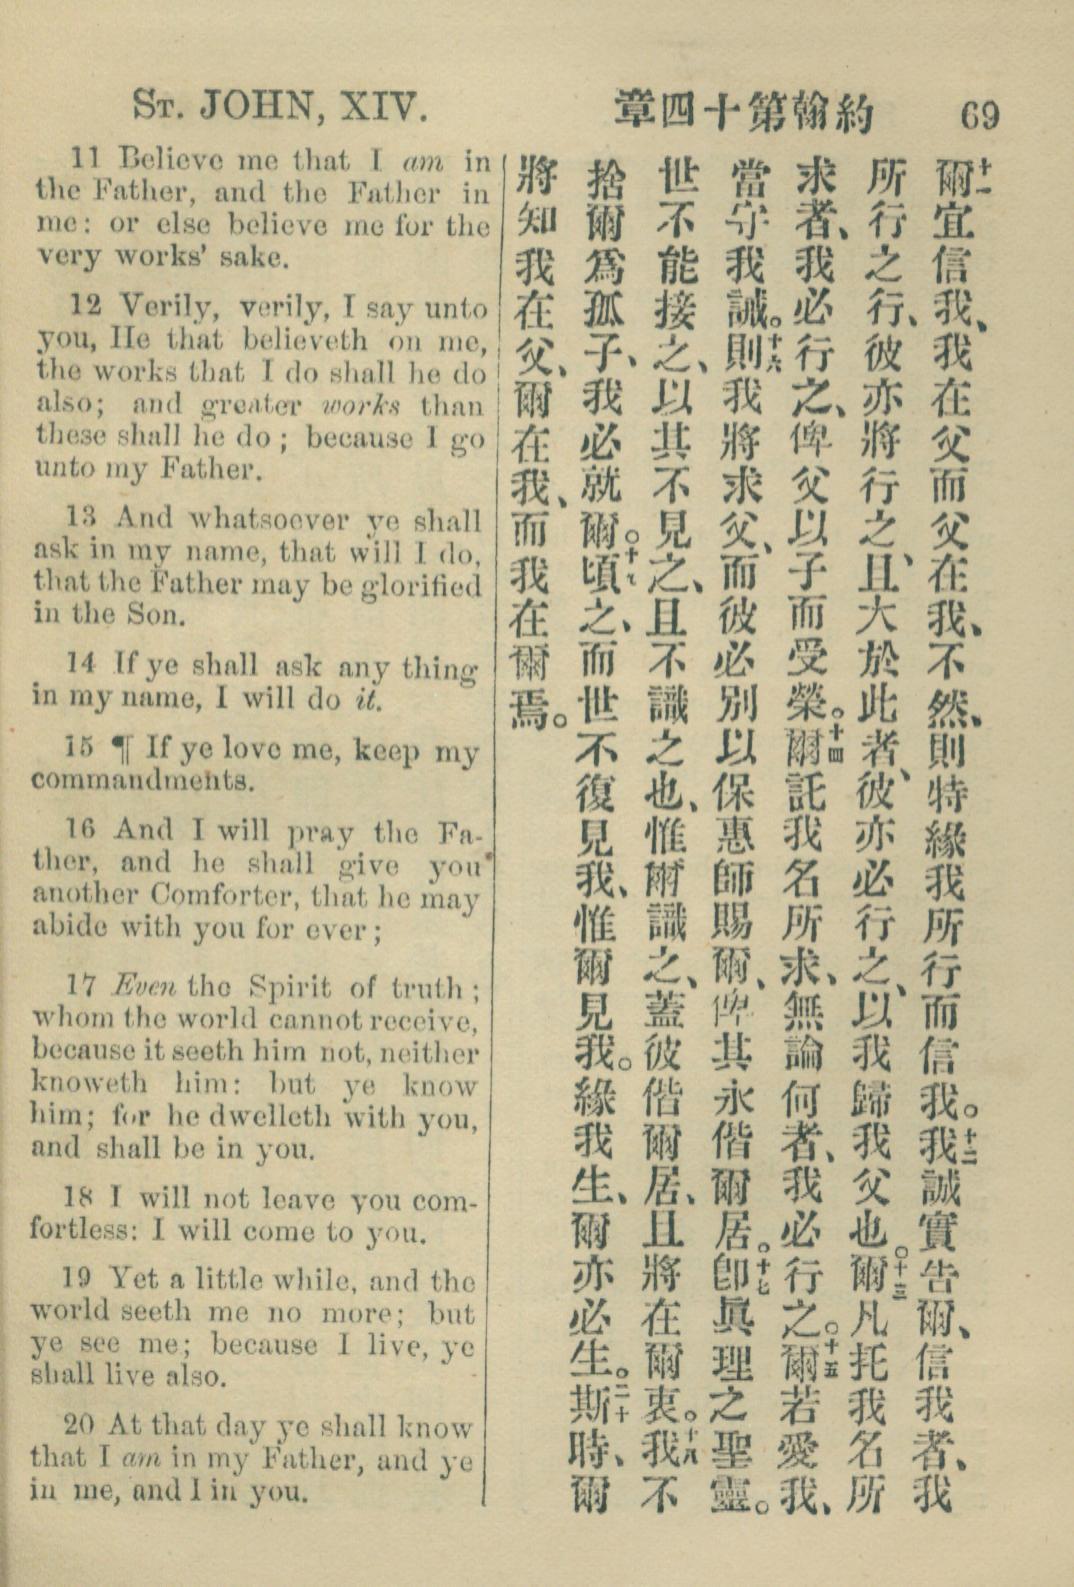 St. JOHN, XIV.
章四十第翰約
69
11 Believe me that I am in
the Father, and the Father in
me: or else believe me for the
very works' sake.
12 Verily, verily, I say unto
you, He that believeth on me,
the works that I do shall he do
also; and greater works than
these shall he do; because I go
unto my Father.
13 And whatsoever ye shall
ask in my name, that will I do,
that the Father may be glorified
in the Son.
14 If ye shall ask any thing
in my name, I will do it.
15 ¶ If ye love me, keep my
commandments.
16 And I will pray the Fa-
ther, and he shall give you
another Comforter, that he may
abide with you for ever;
17 Even the Spirit of truth;
whom the world cannot receive,
because it seeth him not, neither
knoweth him: but ye know
him; for he dwelleth with you,
and shall be in you.
18 I will not leave you com-
fortless: I will come to you.
19 Yet a little while, and the
world seeth me no more; but
ye see me; because I live, ye
shall live also.
20 At that day ye shall know
that I am in my Father, and ye
in me, and I in you.
十一爾宜信我、我在父而父在我、不然、則特緣我所行而信我。十二我誠實告爾、信我者、我
所行之行、彼亦將行之、且大於此者、彼亦必行之、以我歸我父也。十三爾凡托我名所
求者、我必行之、俾父以子而受榮。十四爾託我名所求、無論何者、我必行之。十五爾若愛我、
當守我誡。十六則我將求父、而彼必別以保惠師賜爾、俾其永偕爾居。十七卽眞理之聖靈。
世不能接之、以其不見之、且不識之也、惟爾識之、蓋彼偕爾居、且將在爾衷。十八我不
捨爾爲孤子、我必就爾。十九頃之、而世不復見我、惟爾見我。緣我生、爾亦必生。二十斯時、爾
將知我在父、爾在我、而我在爾焉。